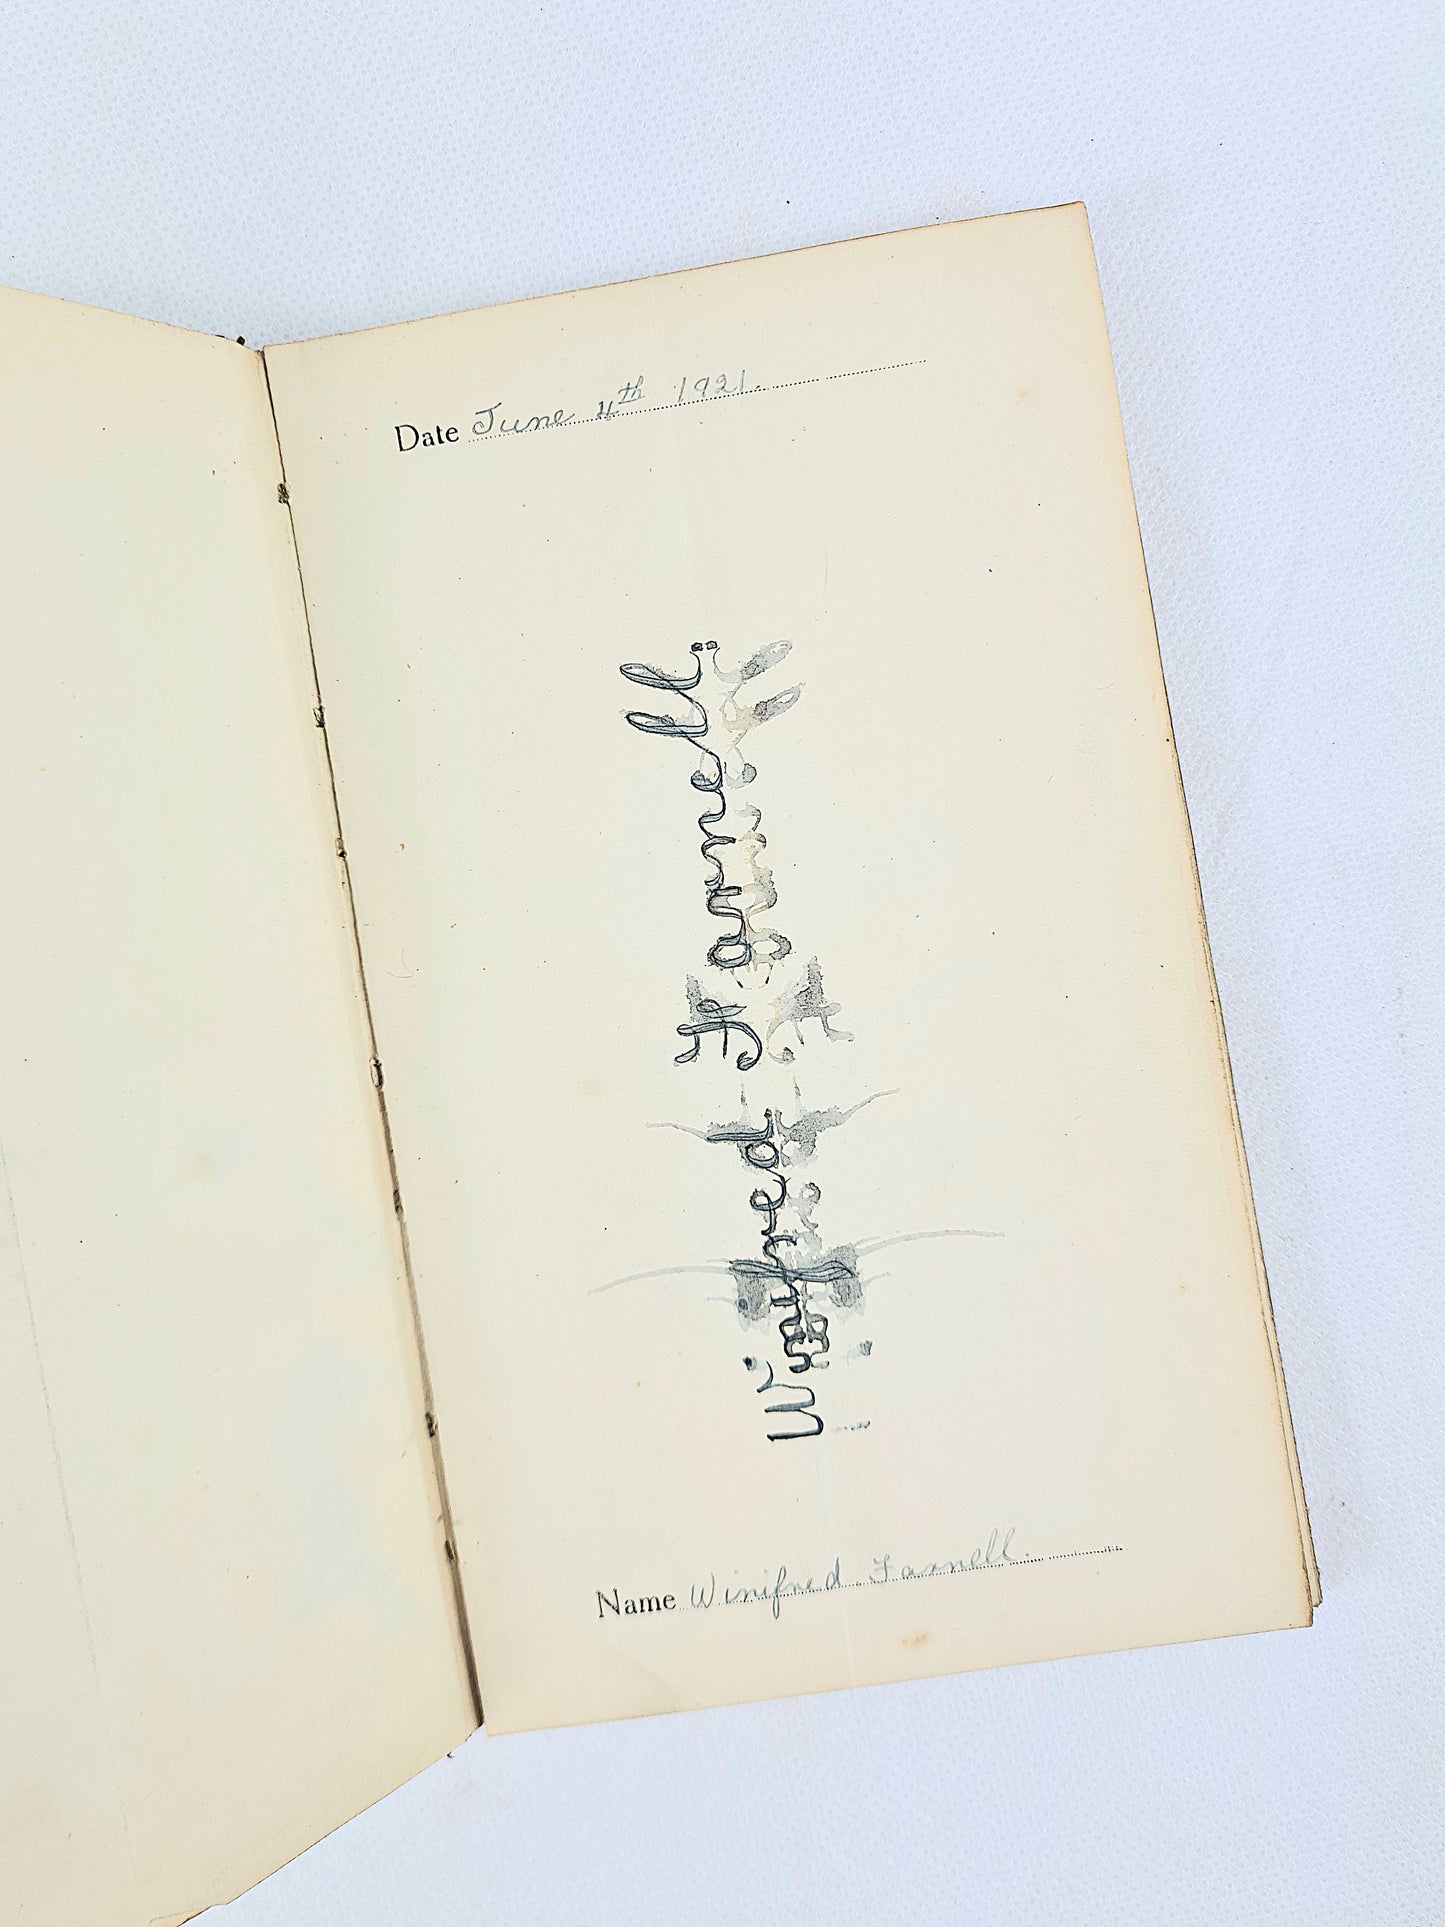 Date June 4th 1921.
Winifred Farnell.
Name Winifred Farnell.